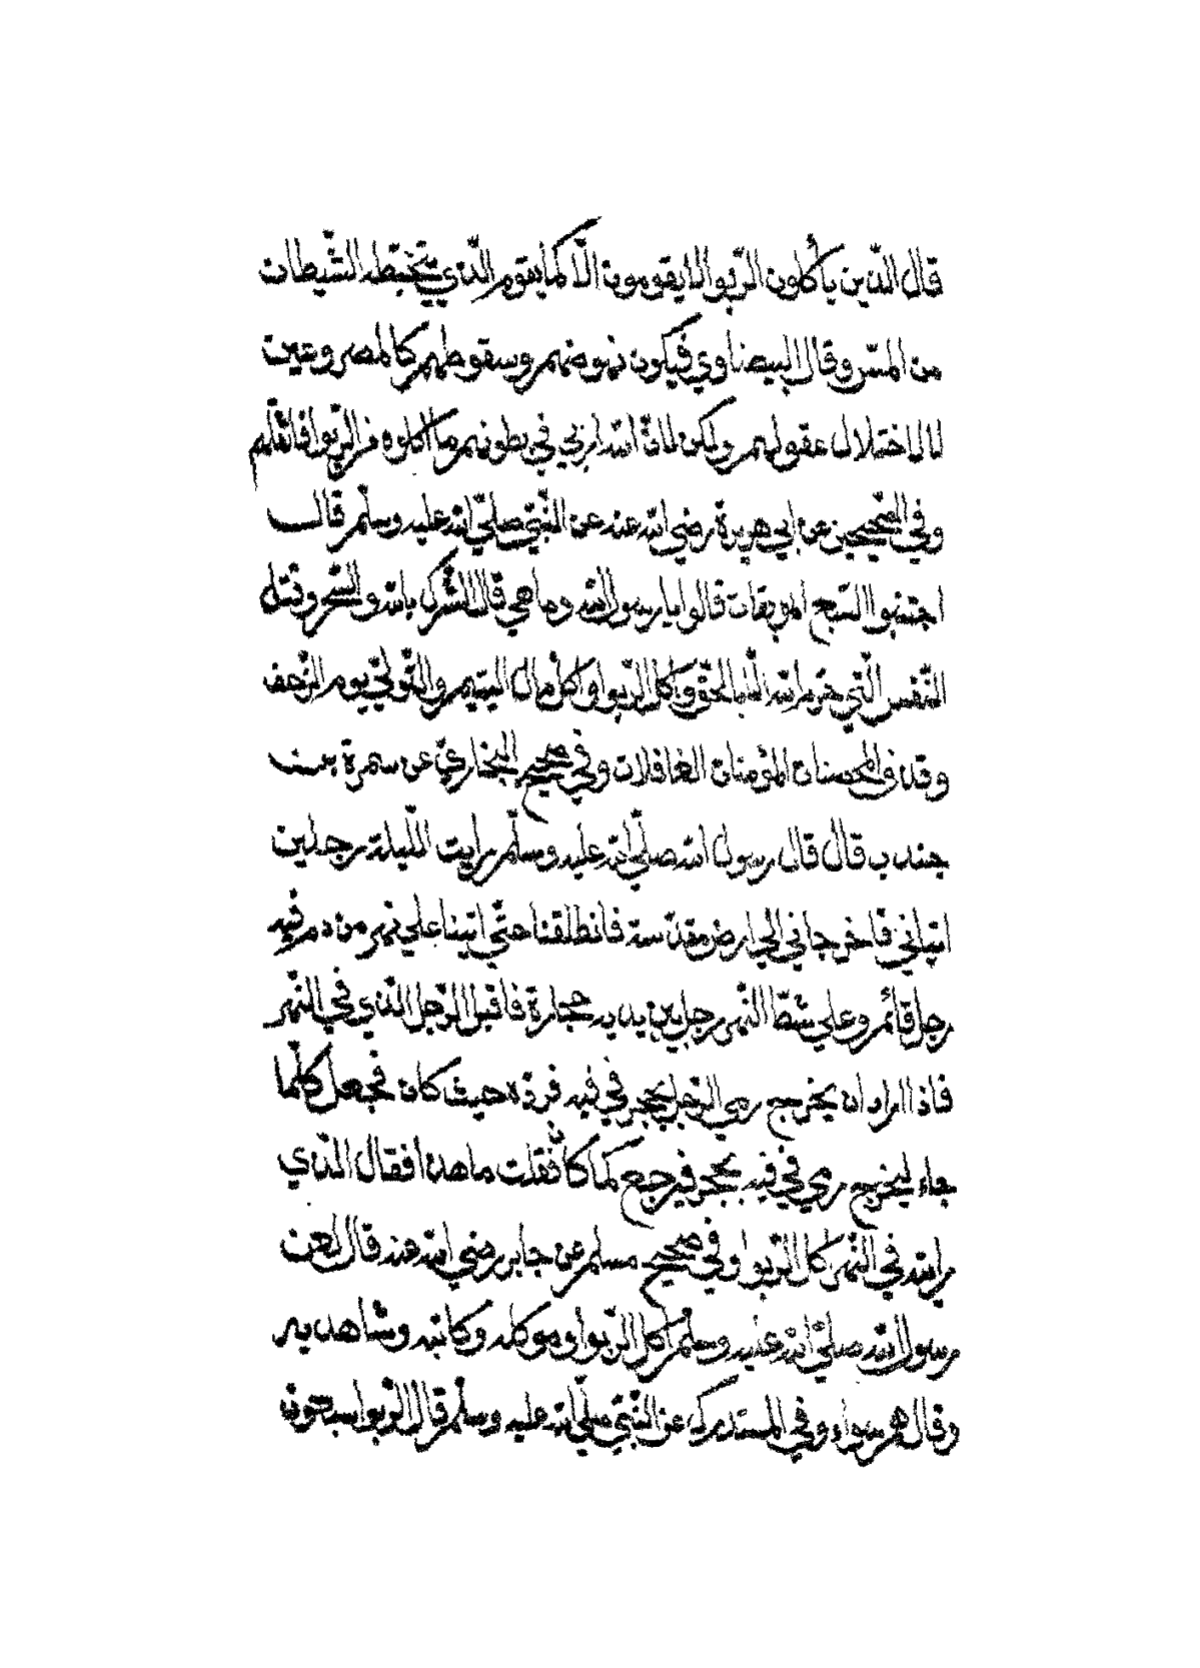 قال الذين يأكلون الربوا لا يقومون الا كما يقوم الذي يتخبطه الشيطان
من المس وقال البيضاوي فيكون نهوضهم وسقوطهم كالمصروعين
لا لاختلال عقولهم ولكن لان الله اربي في بطونهم ما اكلوه من الربوا فاثقلهم
وفي الصحيحين عن ابي هريرة رضي الله عنه عن النبي صلي الله عليه وسلم قال
اجتنبوا السبع الموبقات قالوا يا رسول الله وما هي قال الشرك بالله والسحر وقتل
النفس التي حرم الله الا بالحق واكل الربوا واكل مال اليتيم والتولي يوم الزحف
وقذف المحصنات المؤمنات الغافلات وفي صحيح البخاري عن سمرة بن
جندب قال قال رسول الله صلي الله عليه وسلم رايت الليلة رجلين
اتياني فاخرجاني الي ارض مقدسة فانطلقنا حتي اتينا علي نهر من دم فيه
رجل قائم وعلي شط النهر رجل بين يديه حجارة فاقبل الرجل الذي في النهر
فاذا اراد ان يخرج رمي الرجل بحجر في فيه فرده حيث كان فجعل كلما
جاء ليخرج رمي في فيه بحجر فيرجع كما كان فقلت ما هذا فقال الذي
رايته في النهر اكل الربوا وفي صحيح مسلم عن جابر رضي الله عنه قال لعن
رسول الله صلي الله عليه وسلم اكل الربوا وموكله وكاتبه وشاهديه
وقال هم سواء وفي المستدرك عن النبي صلي الله عليه وسلم قال الربوا سبعون